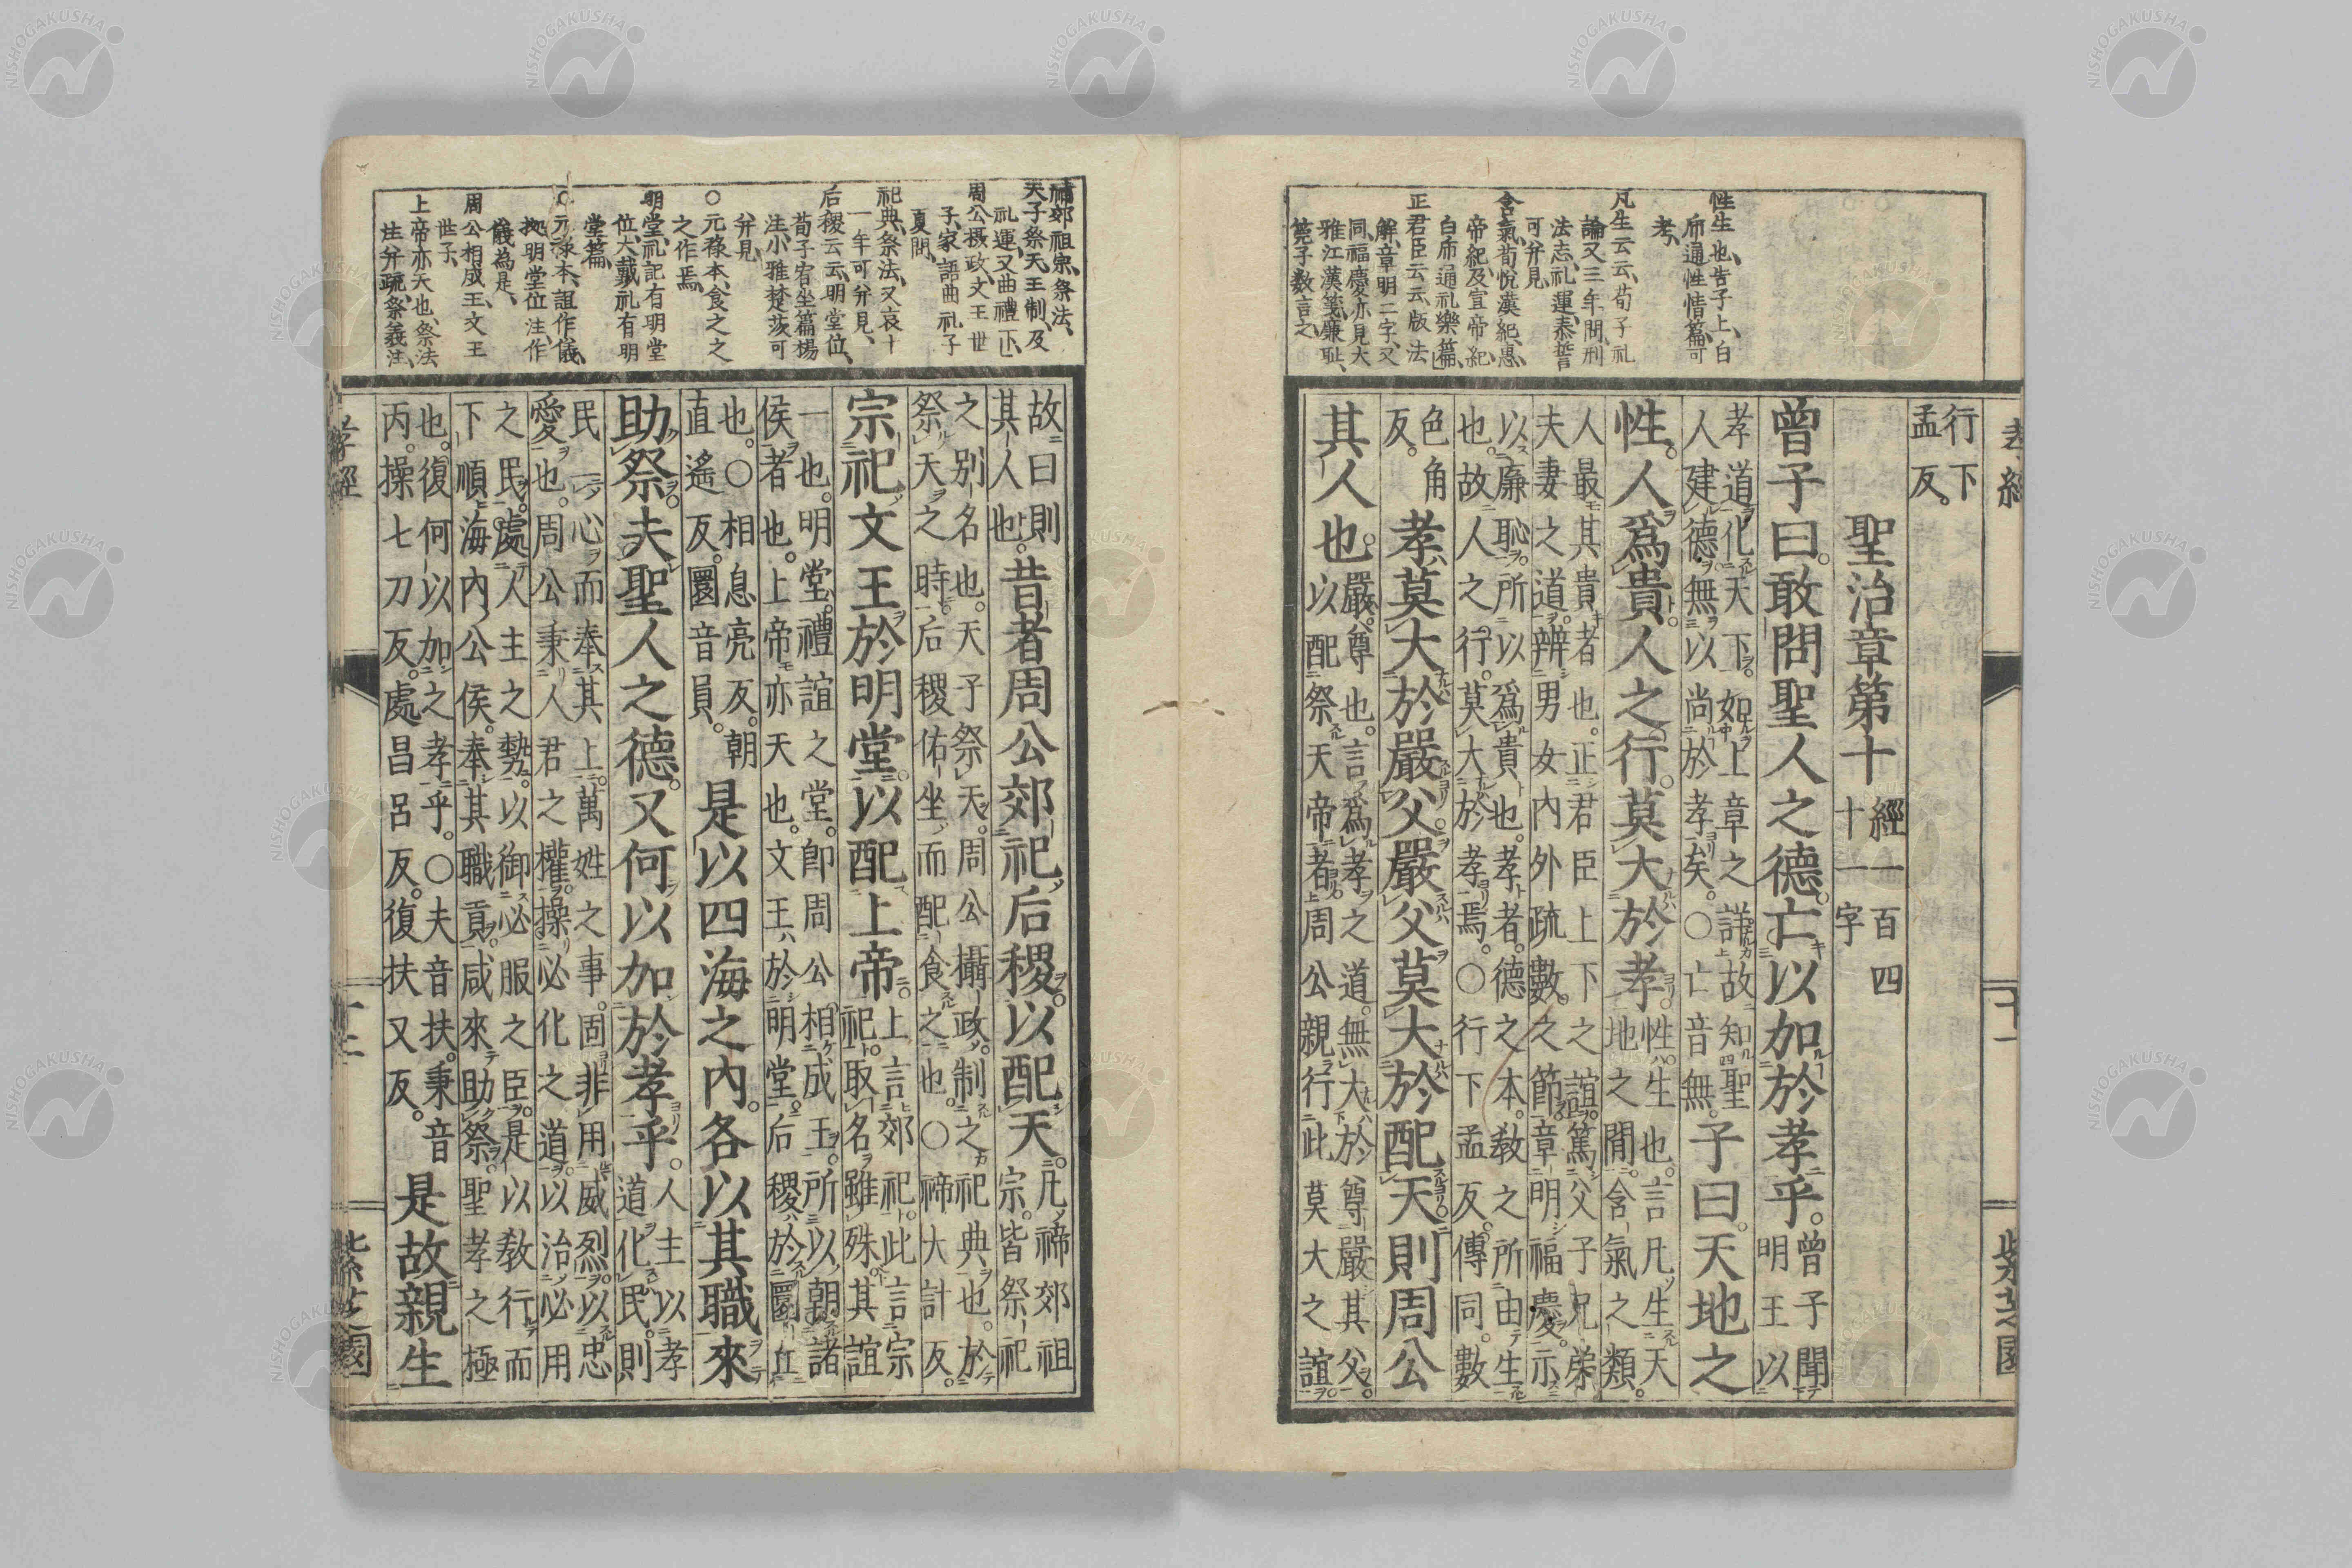 性生也、告子上、白
乕通性情篇可
考、
凡生云云、荀子礼
論又三年問、刑
法志、礼運、泰誓
可并見、
含氣、荀悅漢紀、惠
帝紀及宣帝紀、
白乕通礼樂篇、
正君臣云云、版法
解、章明二字、又
同、福慶亦見大
雅江漢箋、廉耻、
筦子数言之、
行下孟反。
聖治章第十 經一百四十一字
曾子曰。敢問聖人之德。亡以加於孝乎。曾子聞明王以
孝道化天下。如上章之詳故知聖人建德。無以尚於孝矣。○亡音無。子曰。天地之
性。人爲貴。人之行。莫大於孝。性生也。言凡生天地之閒。含氣之類。
人最其貴者也。正君臣上下之誼。篤父子兄弟夫妻之道。辨男女內外疏數之節。章明福慶。示
以廉恥。所以爲貴也。孝者。德之本。敎之所由生也。故人之行。莫大於孝焉。○行下孟反。傳同。數
色角反。孝莫大於嚴父。嚴父莫大於配天。則周公
其人也。嚴尊也。言爲孝之道。無大於尊嚴其父。以配祭天帝者。周公親行此莫大之誼。
禘郊祖宗、祭法、
天子祭天、王制、及
礼運、又曲禮下、
周公摂政、文王世
子、家語曲礼子
夏問、
祀典、祭法、又哀十
一年可并見、
后稷云云、明堂位、
荀子宥坐篇楊
注、小雅楚茨可
并見、
○元祿本、食之之
之作焉、
明堂、礼記有明堂
位、大戴礼有明
堂篇、
○元祿本、誼作儀、
按明堂位注、作
儀為是、
周公相成王、文王
世子、
上帝亦天也、祭法
注并疏、祭義注、
故曰則其人也。昔者周公郊祀后稷。以配天。凡禘郊祖宗。皆祭祀
之別名也。天子祭天。周公攝政。制之祀典也。於祭天之時。后稷佑坐。而配食之也。○禘大計反。
宗祀文王於明堂。以配上帝。上言郊祀。此言宗祀。取名雖殊。其誼
一也。明堂。禮誼之堂。卽周公相成王。所以朝諸侯者也。上帝亦天也。文王於明堂。后稷於圜丘
也。○相息亮反。朝直遙反。圜音員。是以四海之內。各以其職來
助祭。夫聖人之德。又何以加於孝乎。人主以孝道化民。則
民一心而奉其上。萬姓之事。固非用威烈。以忠愛也。周公秉人君之權。操必化之道。以治必用
之民。處人主之勢。以御必服之臣。是以敎行而下順。海內公侯。奉其職貢。咸來助祭。聖孝之極
也。復何以加之孝乎。○夫音扶。秉音丙。操七刀反。處昌呂反。復扶又反。是故親生
孝經
十二
紫芝園